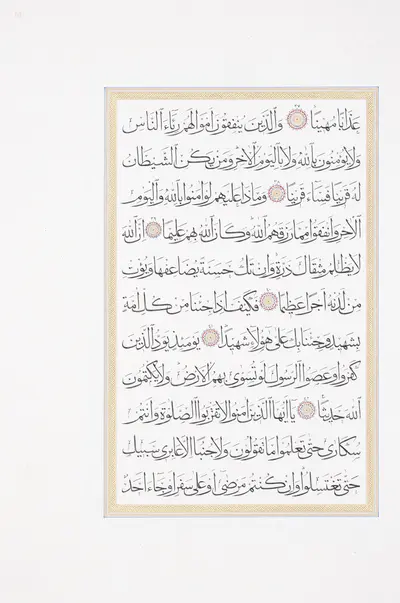 عَذَابًا مُهِينًا وَالَّذِينَ يُنْفِقُونَ أَمْوَالَهُمْ رِئَاءَ النَّاسِ
وَلَا يُؤْمِنُونَ بِاللَّهِ وَلَا بِالْيَوْمِ الْآخِرِ وَمَنْ يَكُنِ الشَّيْطَانُ
لَهُ قَرِينًا فَسَاءَ قَرِينًا وَمَاذَا عَلَيْهِمْ لَوْ آمَنُوا بِاللَّهِ وَالْيَوْمِ
الْآخِرِ وَأَنْفَقُوا مِمَّا رَزَقَهُمُ اللَّهُ وَكَانَ اللَّهُ بِهِمْ عَلِيمًا إِنَّ اللَّهَ
لَا يَظْلِمُ مِثْقَالَ ذَرَّةٍ وَإِنْ تَكُ حَسَنَةً يُضَاعِفْهَا وَيُؤْتِ
مِنْ لَدُنْهُ أَجْرًا عَظِيمًا فَكَيْفَ إِذَا جِئْنَا مِنْ كُلِّ أُمَّةٍ
بِشَهِيدٍ وَجِئْنَا بِكَ عَلَى هَؤُلَاءِ شَهِيدًا يَوْمَئِذٍ يَوَدُّ الَّذِينَ
كَفَرُوا وَعَصَوُا الرَّسُولَ لَوْ تُسَوَّى بِهِمُ الْأَرْضُ وَلَا يَكْتُمُونَ
اللَّهَ حَدِيثًا يَا أَيُّهَا الَّذِينَ آمَنُوا لَا تَقْرَبُوا الصَّلَوةَ وَأَنْتُمْ
سُكَارَى حَتَّى تَعْلَمُوا مَا تَقُولُونَ وَلَا جُنُبًا إِلَّا عَابِرِي سَبِيلٍ
حَتَّى تَغْتَسِلُوا وَإِنْ كُنْتُمْ مَرْضَى أَوْ عَلَى سَفَرٍ أَوْ جَاءَ أَحَدٌ